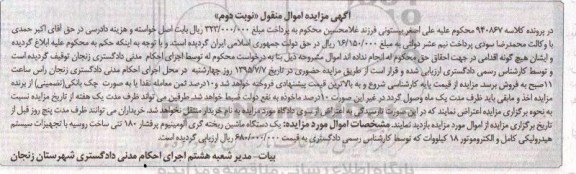 آگهی مزایده اموال منقول «نوبت دوم»
در پرونده کلاسه ۹۴۰۸۶۷ محکوم علیه علی اصغر بیستونی فرزند غلامحسین محکوم به پرداخت مبلغ ۳۲۳/۰۰۰/۰۰۰ ریال بابت اصل خواسته و هزینه دادرسی در حق آقای اکبر احمدی
با وکالت محمدرضا سودی پرداخت نیم عشر دولتی به مبلغ ۱۶/۱۵۰/۰۰۰ ریال در حق دولت جمهوری اسلامی ایران گردیده است. و با توجه به اینکه حکم به محکوم علیه ابلاغ گردیده
و ایشان هیچ گونه اقدامی در جهت احقاق حق محکوم له انجام نداده اند اموال مشروحه ذیل بنا به درخواست محکوم له توسط اجرای احکام مدنی دادگستری زنجان توقیف گردیده است
و توسط کارشناس رسمی دادگستری ارزیابی شده و قرار است از طریق مزایده حضوری در تاریخ ۱۳۹۵/۷/۷ روز چهارشنبه در محل اجرای احکام مدنی دادگستری زنجان راس ساعت
۱۱ صبح به فروش برسد. مزایده از قیمت پایه کارشناسی شروع و به بالاترین قیمت پیشنهادی فروخته خواهد شد و ۱۰ درصد ثمن معامله نقدا یا به صورت چک بانکی (تضمینی) از برنده
مزایده اخذ و مابقی باید ظرف مدت یک ماه وصول گردد در غیر این صورت ۱۰ درصد ماخوذه به نفع دولت ضبط خواهد شد. طرفین می توانند ظرف مدت یک هفته از تاریخ مزایده نسبت
به نحوه برگزاری مزایده اعتراض نمایند که در این صورت تا رسیدگی به اعتراض از سوی دادگاه مورد مزایده به نام خریدار منتقل نخواهد شد. خریداران می توانند ظرف مدت پنج روز قبل از
تاریخ برگزاری مزایده از اموال مورد مزایده بازدید نمایند. مشخصات اموال مورد مزایده: یک دستگاه ماشین ریخته گری آلومینیوم پرفشار ۱۸۰ تنی ساخت روسیه با تجهیزات سیستم
هیدرولیکی کامل و الکتروموتور ۱۸ کیلووات که توسط کارشناس رسمی دادگستری به قیمت ۶۸۰/۰۰۰/۰۰۰ ریال ارزیابی گردیده است.
بیات- مدیر شعبه هشتم اجرای احکام مدنی دادگستری شهرستان زنجان